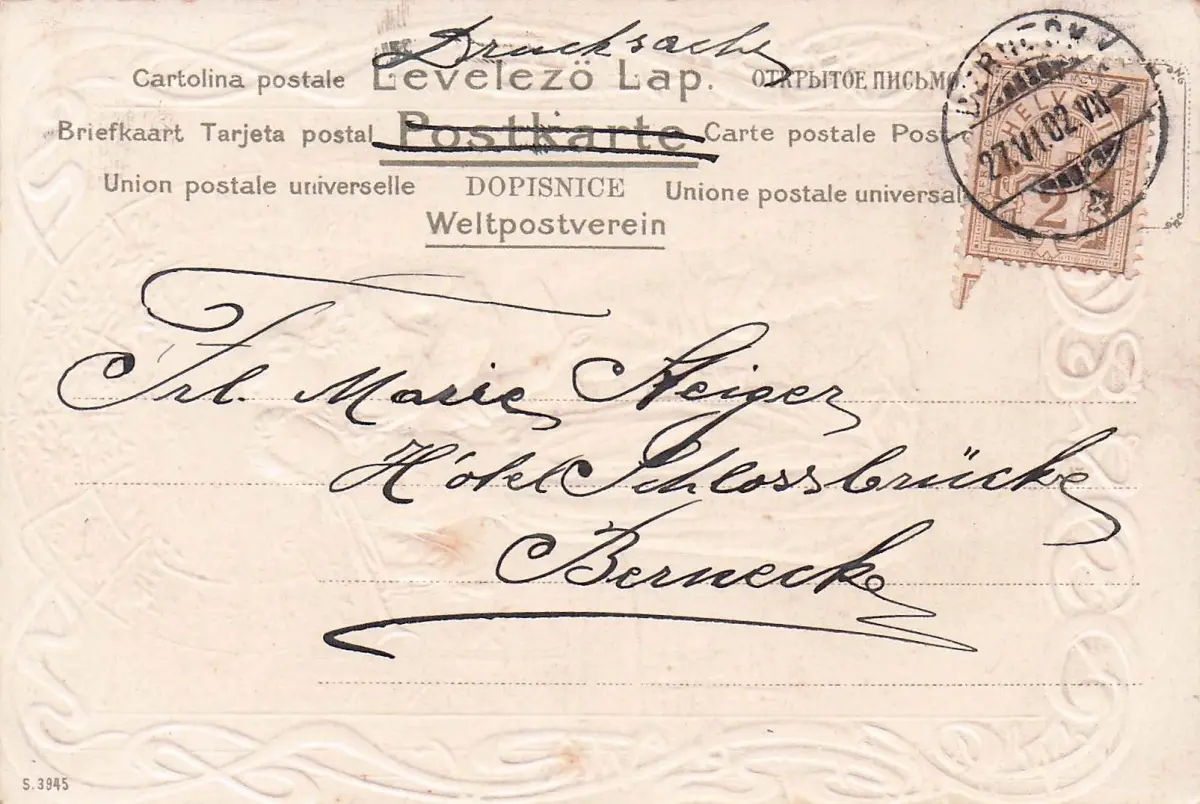 Drucksache
Cartolina postale Levelezö Lap. ОТКРЫТОЕ ПИСЬМО
Briefkaart Tarjeta postal Postkarte Carte postale Post
Union postale universelle DOPISNICE Unione postale universale
Weltpostverein
HELVETIA
2
27.VI.02.VII
Frl. Marie Steiger
Hôtel Schlossbrücke
Berneck
S.3945